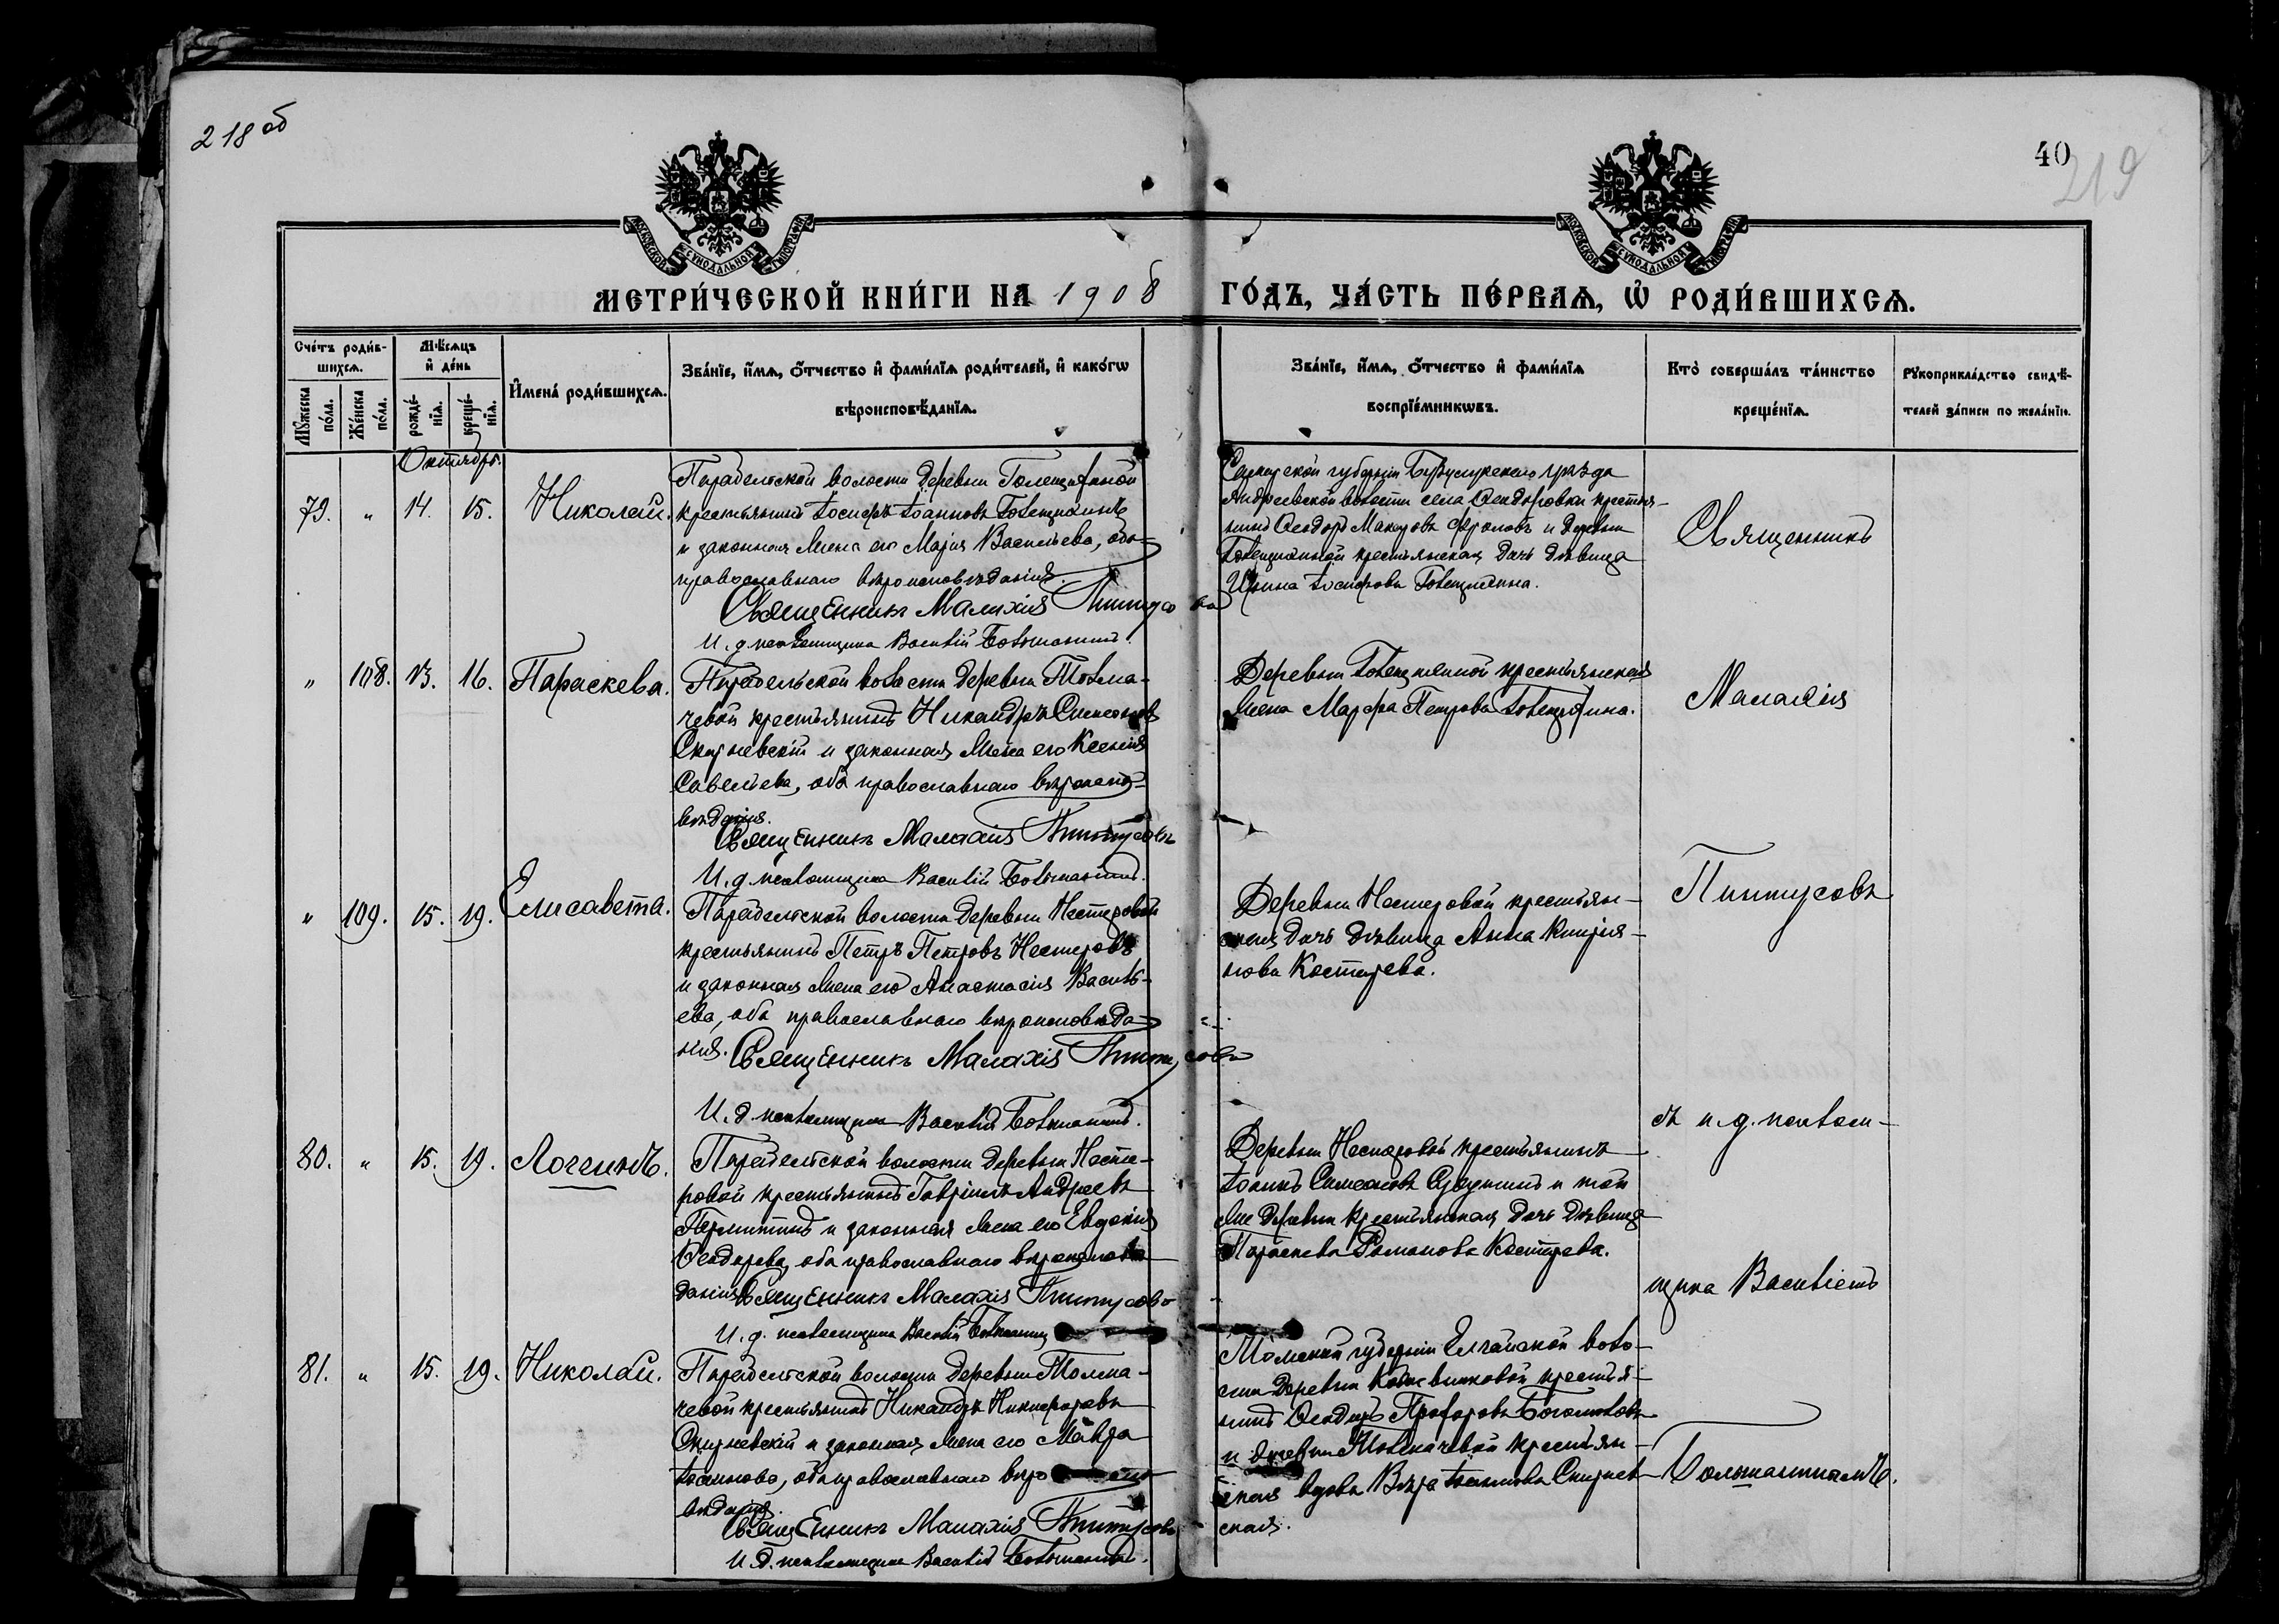 218 об
40
219
МОСКОВСКОЙ СѴНОДАЛЬНОЙ ТИПОГРАФІИ
МОСКОВСКОЙ СѴНОДАЛЬНОЙ ТИПОГРАФІИ
МЕТРИ́ЧЕСКОЙ КНИ́ГИ НА 1908
ГО́ДЪ, ЧА́СТЬ ПЕ́РВАѦ, Ѡ҆ РОДИ́ВШИХСѦ.
Сче́тъ роди́в-
шихсѧ.
Мꙋ́жеска
по́ла.
Же́нска
по́ла.
Мѣ́сѧцъ
и҆ де́нь
рожде́-
нїѧ.
креще́-
нїѧ.
И҆мена̀ роди́вшихсѧ.
Зва́нїе, и҆́мѧ, ѻ҆́тчество и҆ фами́лїѧ роди́телей, и҆ како́гѡ
вѣроисповѣ́данїѧ.
Зва́нїе, и҆́мѧ, ѻ҆́тчество и҆ фами́лїѧ
воспрїе́мникѡвъ.
Кто̀ соверша́лъ та́инство
креще́нїѧ.
Рꙋкоприкла́дство свидѣ́-
телей за́писи по жела́нїю.
Октябрь.
79. „ 14. 15. Николай.
Парабельской волости деревни Голещихиной
крестьянинъ Іосифъ Іоанновъ Голещихинъ
и законная жена его Марія Васильева, оба
православнаго вѣроисповѣданія.
Священникъ Малахія Пинтусовъ
И. д. псаломщика Василій Большанинъ.
Самарской губерніи Бузулукскаго уѣзда
Андреевской волости села Ѳеодоровки крестья-
нинъ Ѳеодоръ Фроловъ и деревни
Голещихиной крестьянская дочь дѣвица
Ирина Іосифова Голещихина.
Священникъ
„ 108. 13. 16. Параскева.
Парабельской волости деревни Толма-
чевой крестьянинъ Никандръ Симеоновъ
Скирневскій и законная жена его Ксенія
Савельева, оба православнаго вѣроиспо-
вѣданія.
Священникъ Малахія Пинтусовъ
И. д. псаломщика Василій Большанинъ.
Деревни Голещихиной крестьянская
жена Марфа Петрова Голещихина.
Малахія
„ 109. 15. 19. Елисавета.
Парабельской волости деревни Нестеровой
крестьянинъ Петръ Петровъ Нестеровъ
и законная жена его Анастасія Василь-
ева, оба православнаго вѣроисповѣда-
нія. Священникъ Малахія Пинтусовъ
И. д. псаломщика Василій Большанинъ.
Деревни Нестеровой крестьян-
ская дочь дѣвица Анна Кипрія-
нова Костарева.
Пинтусовъ
80. „ 15. 19. Логгинъ.
Парабельской волости деревни Несте-
ровой крестьянинъ Гавріилъ Андреевъ
и законная жена его Евдокія
Ѳеодорова, оба православнаго вѣроисповѣ-
данія. Священникъ Малахія Пинтусовъ
И. д. псаломщика Василій Большанинъ
Деревни Нестеровой крестьянинъ
Іоаннъ Симеоновъ и той
же деревни крестьянская дочь дѣвица
Параскева Романова Костарева.
съ и. д. псалом-
щика Василіемъ
81. „ 15. 19. Николай.
Парабельской волости деревни Толма-
чевой крестьянинъ Никандръ Никифоровъ
Скирневскій и законная жена его Мавра
Іоаннова, оба православнаго вѣроиспо-
вѣданія.
Священникъ Малахія Пинтусовъ
И. д. псаломщика Василій Большанинъ.
Томской губерніи Елгайской воло-
сти деревни крестья-
нинъ Ѳеодоръ Прохоровъ
и деревни Толмачевой крестьян-
ская вдова Вѣра Іоаннова Скирнев-
ская.
Большанинымъ.